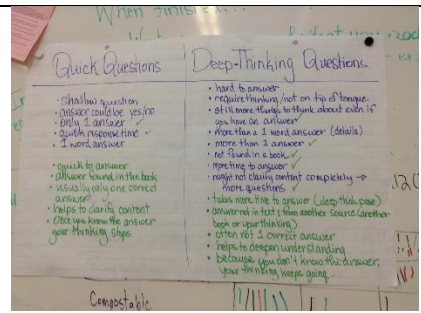 When finished...
Quick Questions
• shallow question
• answer could be yes/no
• only 1 answer ✓
• quick response time ✓
• 1 word answer
• quick to answer
• answer found in the book
• usually only one correct
answer
• helps to clarify content
• Once you know the answer
your thinking stops
Deep-Thinking Questions
• hard to answer
• require thinking/not on tip of tongue
• still more things to think about even if
you have an answer
• more than a 1 word answer (details)
• more than 1 answer ✓
• not found in a book ✓
• more time to answer ✓
• might not clarify content completely →
more questions ✓
• takes more time to answer (deep think pose)
• answer not in text; from another source (another
book or your thinking)
• often not 1 correct answer
• helps to deepen understanding
• because you don't know the answer,
your thinking keeps going.
Compostable